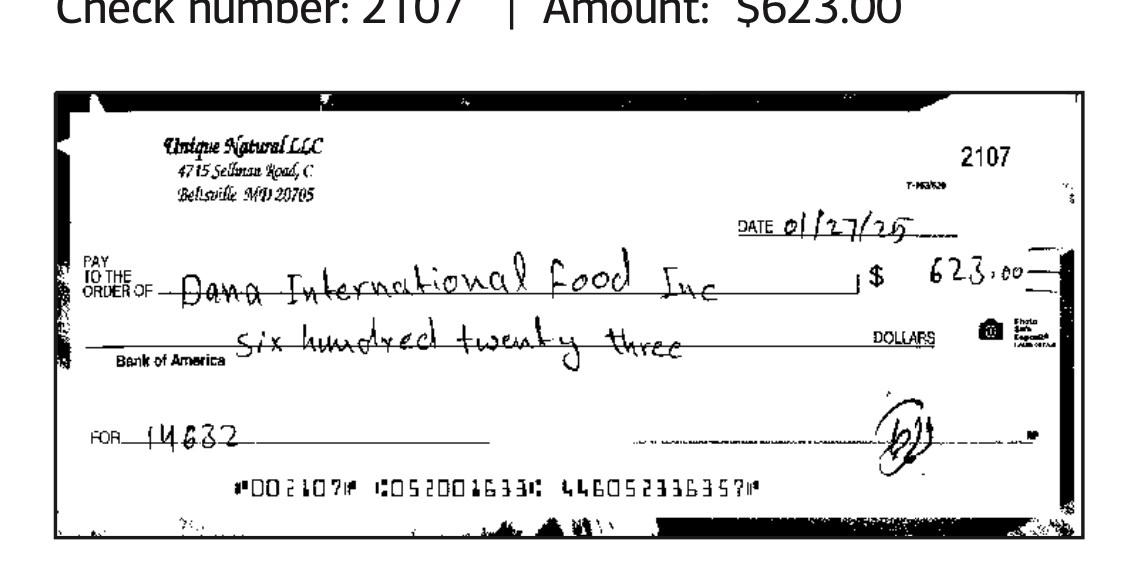 Check number: 2107 | Amount: $623.00
Unique Natural LLC
4715 Sellman Road, C
Beltsville MD 20705
2107
DATE 01/27/25
PAY
TO THE
ORDER OF Dana International Food Inc $ 623.00
six hundred twenty three DOLLARS
Photo
Safe
Deposit®
Bank of America
FOR 14632
MP
⑈002107⑈ ⑆052001633⑆ 446052336357⑈